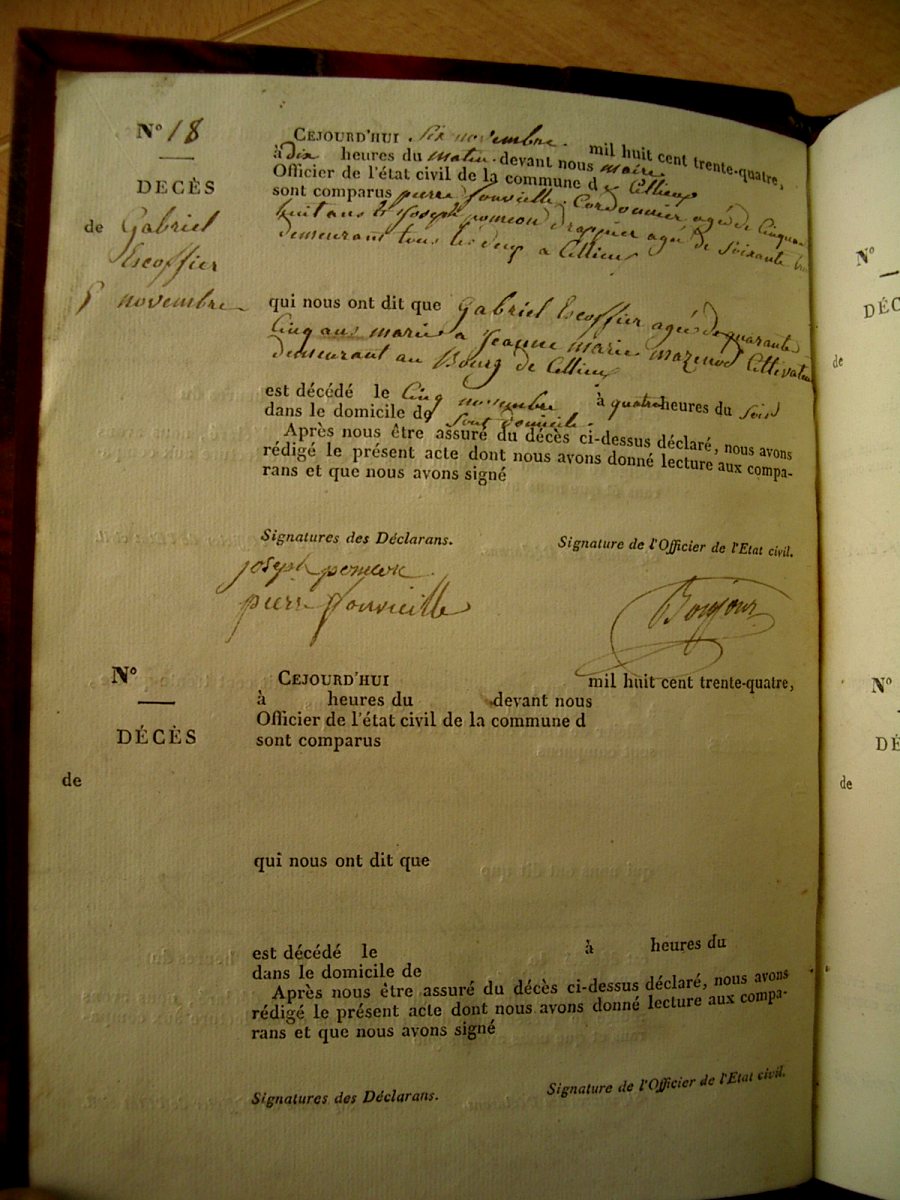 N° 18
DECÈS
de Gabriel
Escoffier
5 novembre
CEJOURD'HUI Six novembre. mil huit cent trente-quatre,
à dix heures du matin. devant nous maire
Officier de l'état civil de la commune de Cellieu
sont comparus pierre fonvieille Cordonnier agée de Cinquan
huit ans & Joseph pomeon drappier agé de Soixante
demeurant tous les deux a Cellieu
qui nous ont dit que Gabriel Escoffier agée de quarante
Cinq ans marie a Jeanne marie mazenod Cultivateur
demeurant au Bourg de Cellieu
est décédé le Cinq novembre à quatre heures du Soir
dans le domicile de Sont domicile.
Après nous être assuré du décès ci-dessus déclaré, nous avons
rédigé le présent acte dont nous avons donné lecture aux compa-
rans et que nous avons signé
Signatures des Déclarans. Signature de l'Officier de l'Etat civil.
joseph pomeon
pierre fonvieille
Bonjour
N°
DÉCÈS
de
CEJOURD'HUI mil huit cent trente-quatre,
à heures du devant nous
Officier de l'état civil de la commune d
sont comparus
qui nous ont dit que
est décédé le à heures du
dans le domicile de
Après nous être assuré du décès ci-dessus déclaré, nous avons
rédigé le présent acte dont nous avons donné lecture aux compa-
rans et que nous avons signé
Signatures des Déclarans. Signature de l'Officier de l'Etat civil.
N°
DÉC
de
N°
DÉ
de